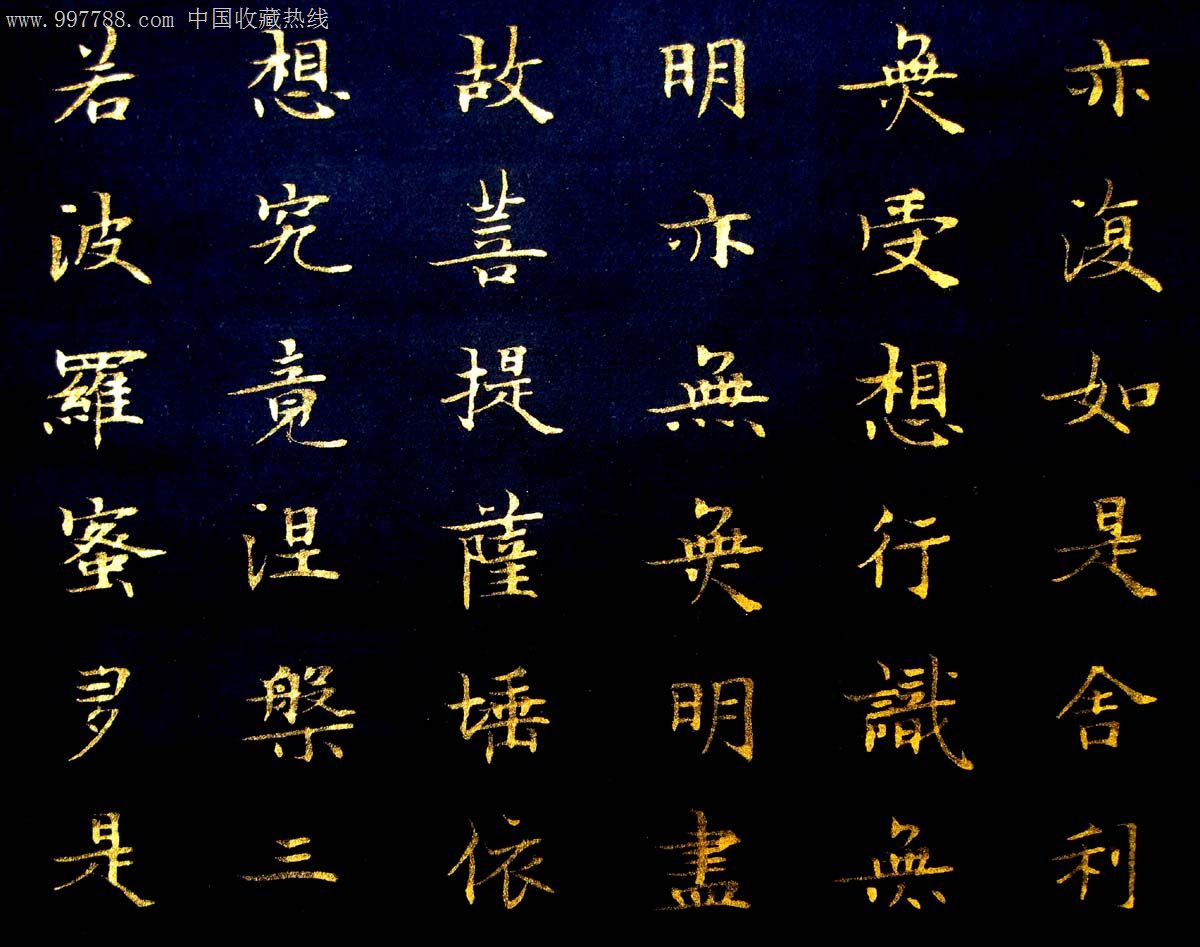 www.997788.com 中国收藏热线
亦復如是舍利
無受想行識無
明亦無無明盡
故菩提薩埵依
想究竟涅槃三
若波羅蜜多是